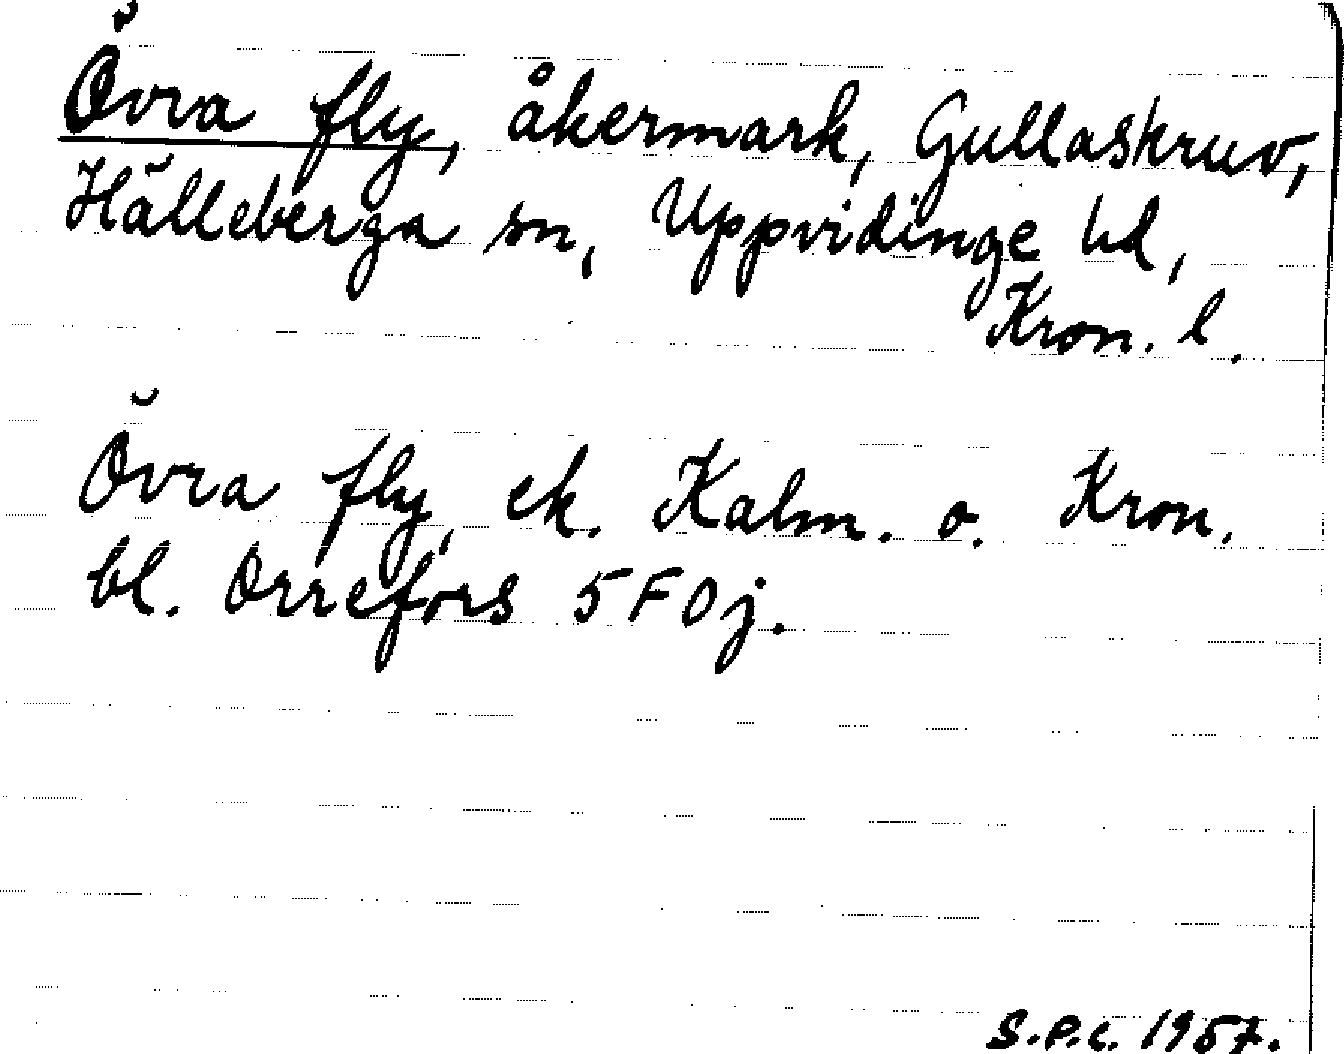 Övra fly, åkermark, Gullaskruv,
Hälleberga sn, Uppvidinge hd,
Kron. l.
Övra fly, ek. Kalm. o. Kron.
bl. Orrefors 5F0j.
S.P.L. 1957.